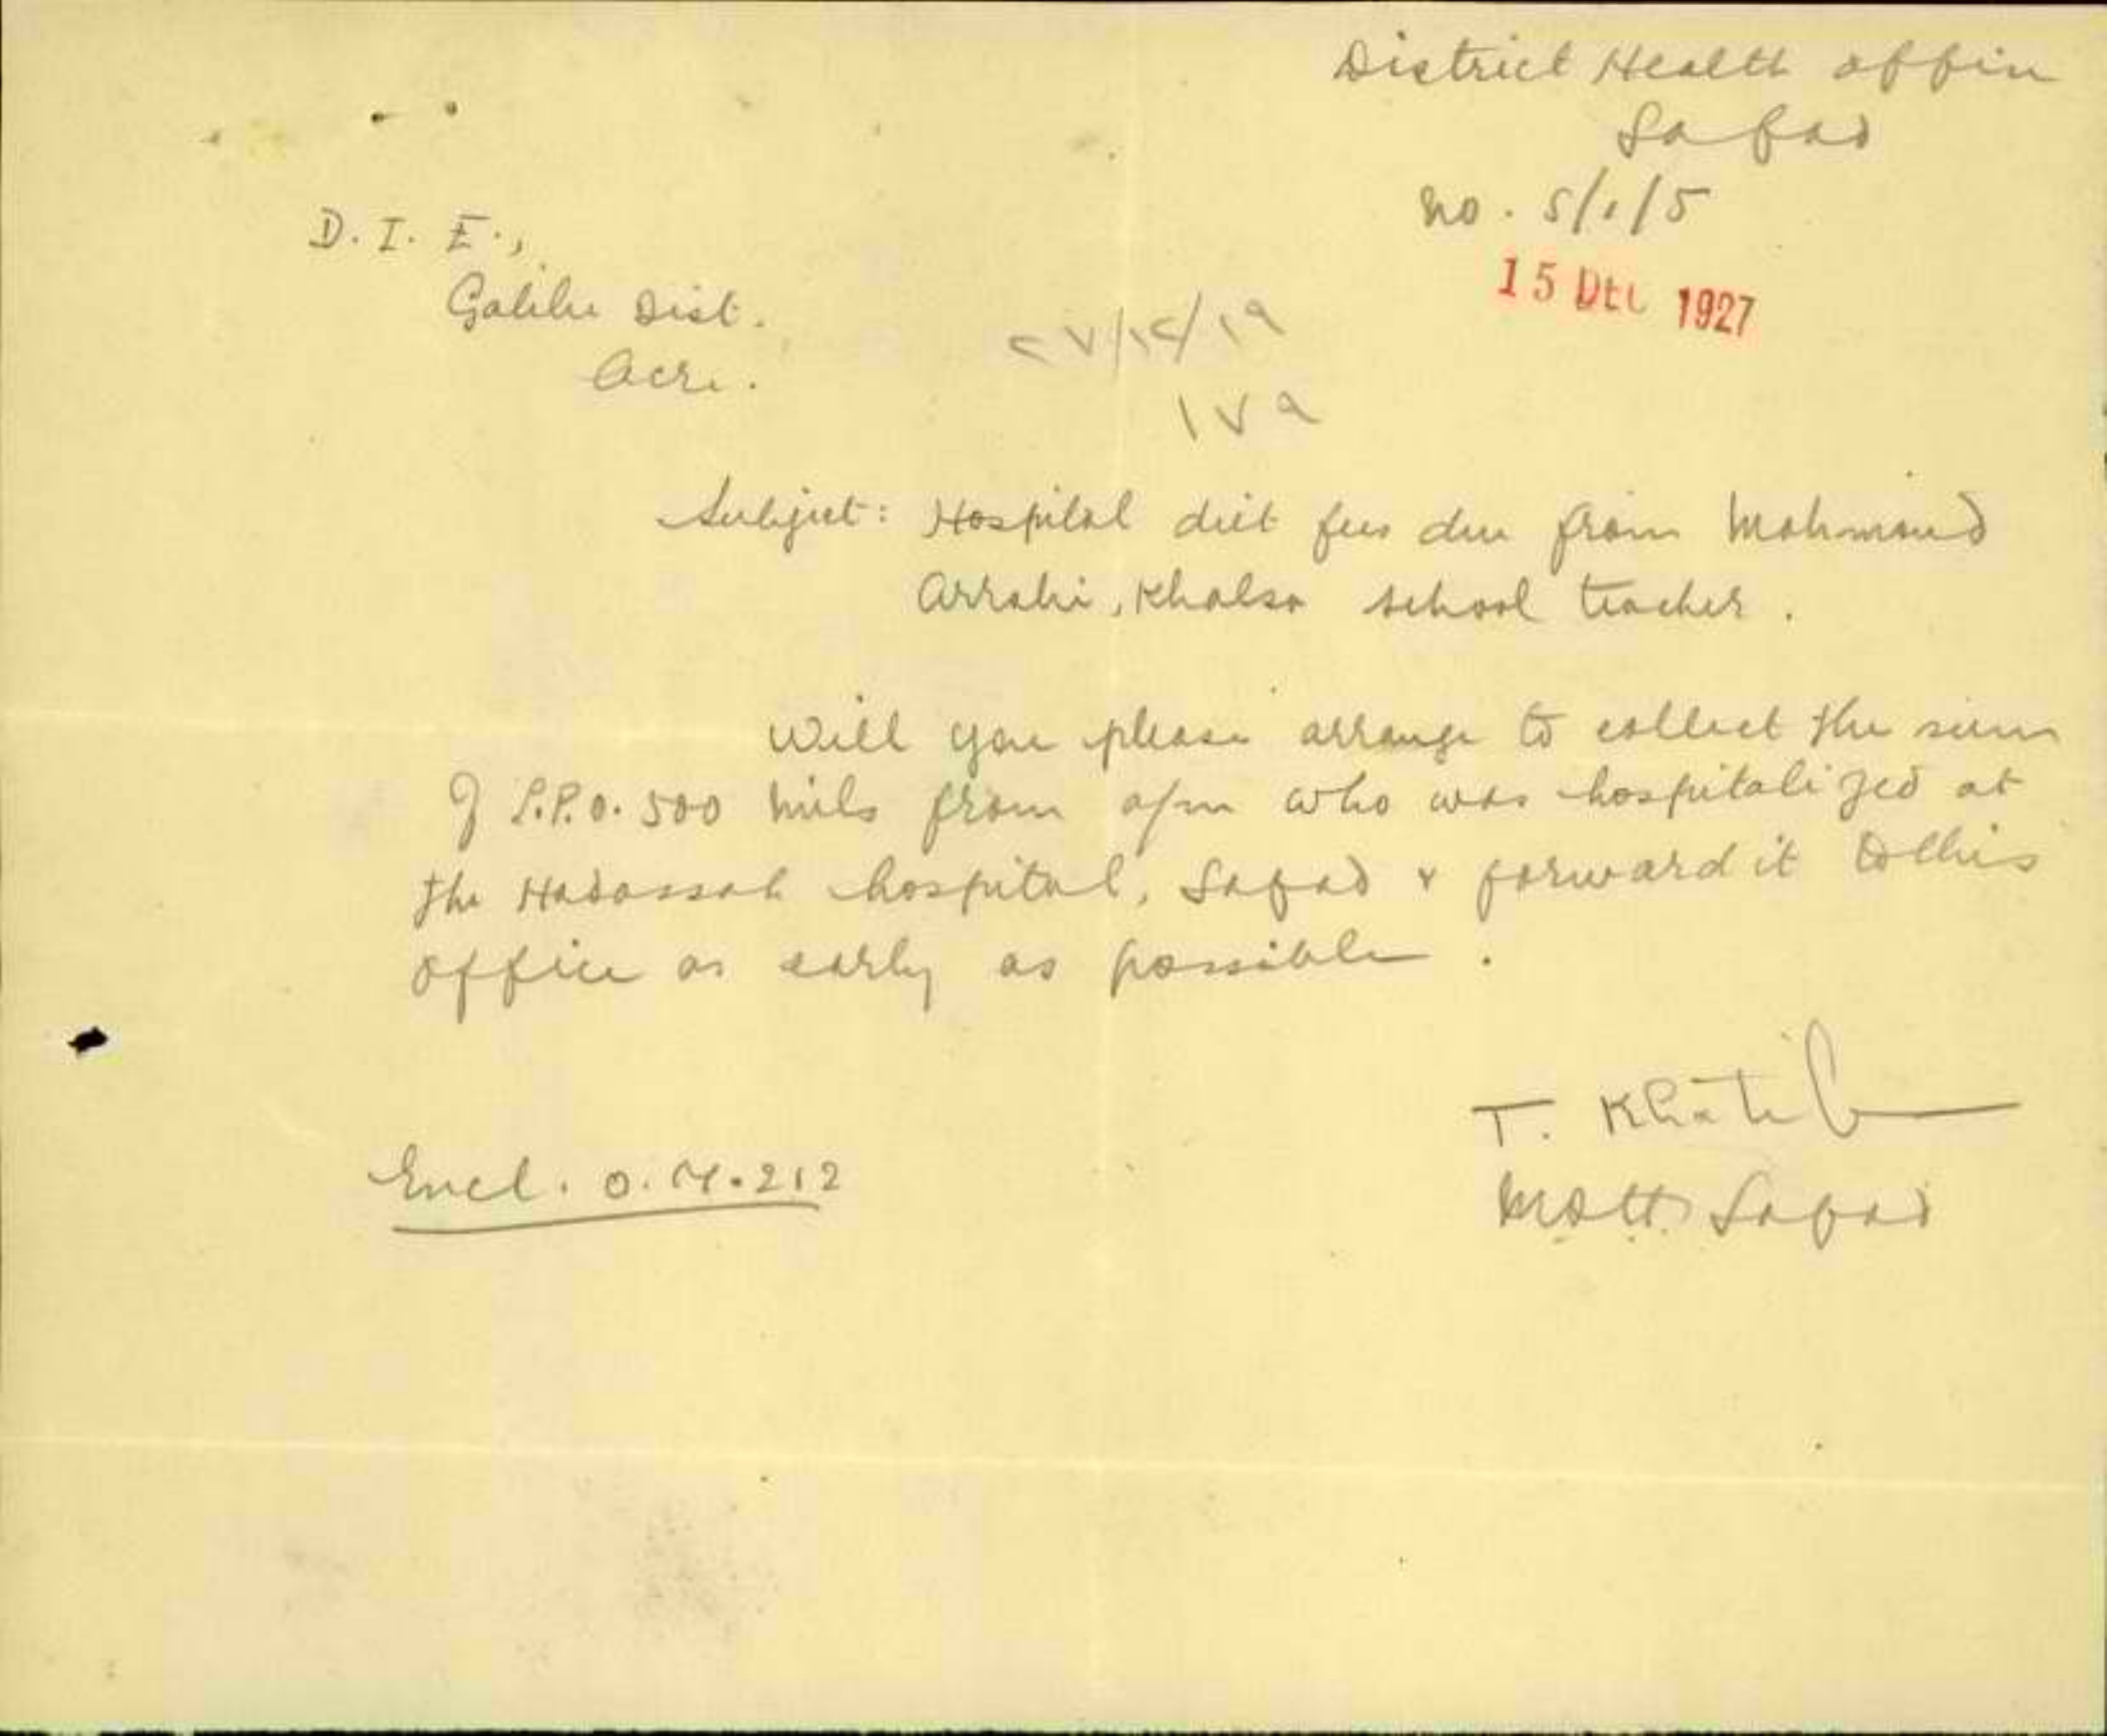 District Health office
Safad
No. 5/1/5
15 DEC 1927
D. I. E.,
Galilee Dist.
Acre.
٢٧/١٢/١٩
١٧٩
Subject: Hospital diet fees due from Mahmoud
Arrabi, Khalsa school teacher.
Will you please arrange to collect the sum
of L.P.0.500 mils from a/m who was hospitalized at
the Hadassah hospital, Safad & forward it to this
office as early as possible.
T. Khatib
Safad
Encl. O.M.212